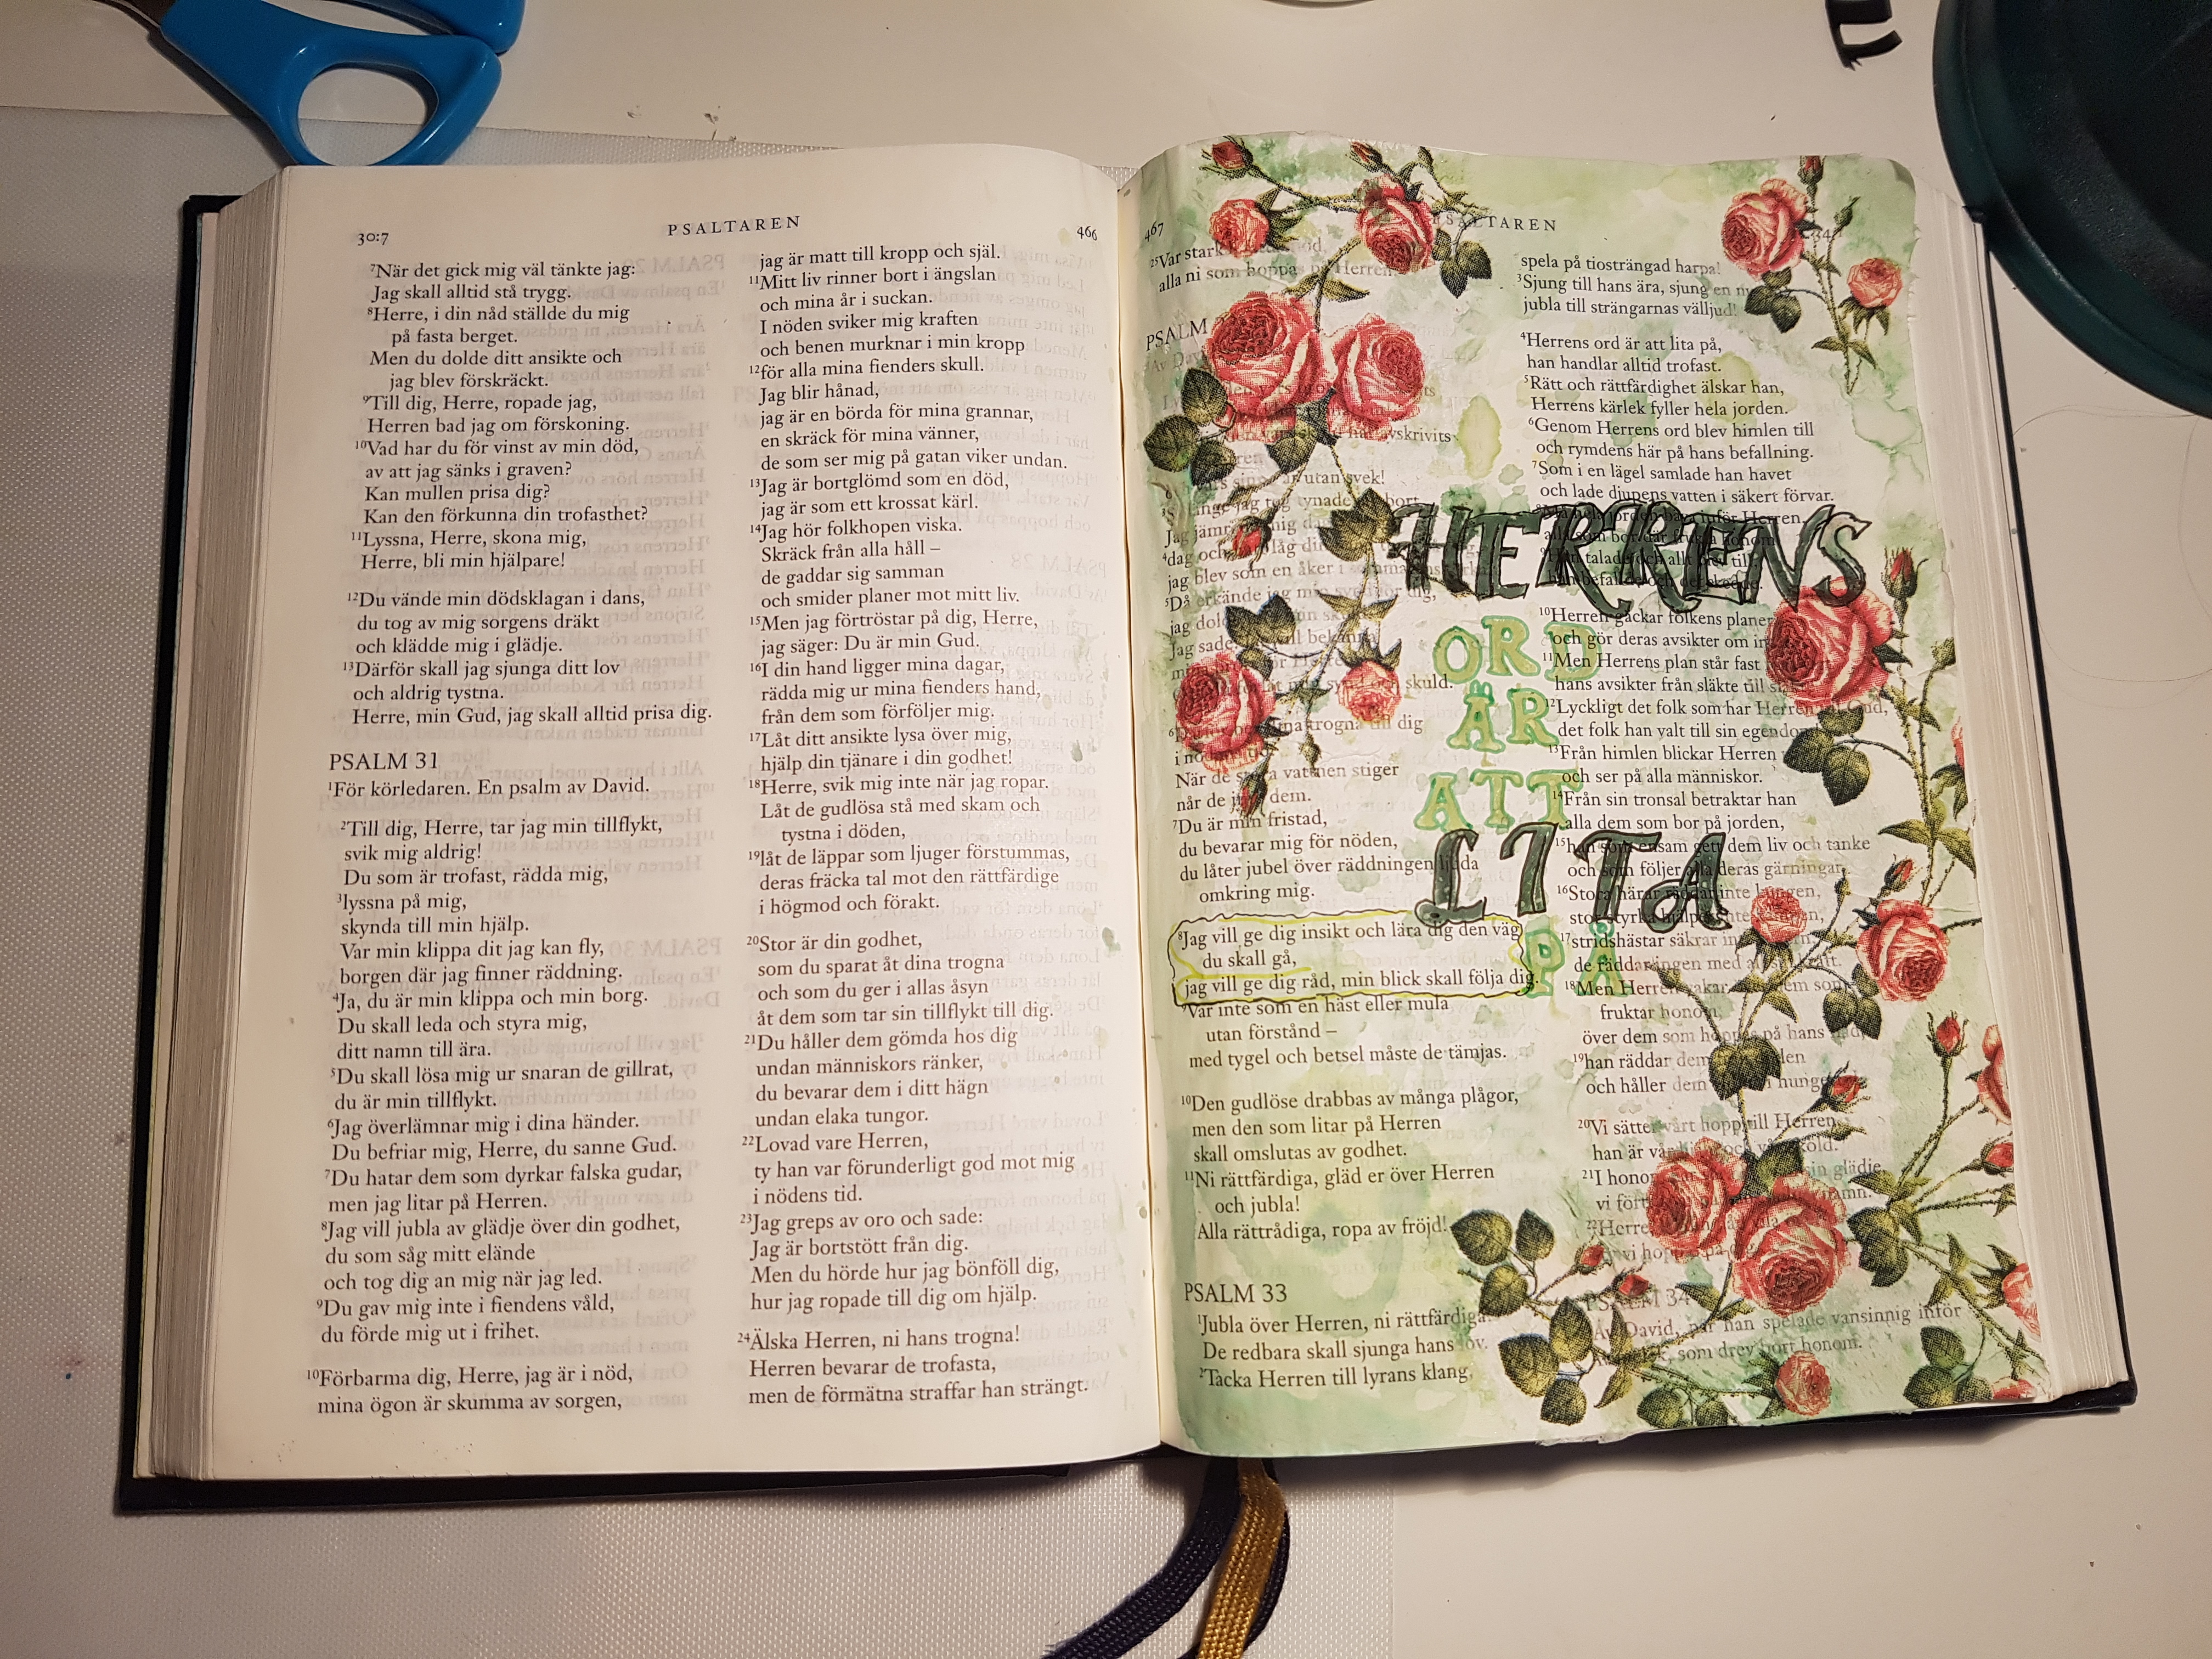 30:7
PSALTAREN
466
⁷När det gick mig väl tänkte jag:
Jag skall alltid stå trygg.
⁸Herre, i din nåd ställde du mig
på fasta berget.
Men du dolde ditt ansikte och
jag blev förskräckt.
⁹Till dig, Herre, ropade jag,
Herren bad jag om förskoning.
¹⁰Vad har du för vinst av min död,
av att jag sänks i graven?
Kan mullen prisa dig?
Kan den förkunna din trofasthet?
¹¹Lyssna, Herre, skona mig,
Herre, bli min hjälpare!
¹²Du vände min dödsklagan i dans,
du tog av mig sorgens dräkt
och klädde mig i glädje.
¹³Därför skall jag sjunga ditt lov
och aldrig tystna.
Herre, min Gud, jag skall alltid prisa dig.
PSALM 31
¹För körledaren. En psalm av David.
²Till dig, Herre, tar jag min tillflykt,
svik mig aldrig!
Du som är trofast, rädda mig,
³lyssna på mig,
skynda till min hjälp.
Var min klippa dit jag kan fly,
borgen där jag finner räddning.
⁴Ja, du är min klippa och min borg.
Du skall leda och styra mig,
ditt namn till ära.
⁵Du skall lösa mig ur snaran de gillrat,
du är min tillflykt.
⁶Jag överlämnar mig i dina händer.
Du befriar mig, Herre, du sanne Gud.
⁷Du hatar dem som dyrkar falska gudar,
men jag litar på Herren.
⁸Jag vill jubla av glädje över din godhet,
du som såg mitt elände
och tog dig an mig när jag led.
⁹Du gav mig inte i fiendens våld,
du förde mig ut i frihet.
¹⁰Förbarma dig, Herre, jag är i nöd,
mina ögon är skumma av sorgen,
jag är matt till kropp och själ.
¹¹Mitt liv rinner bort i ängslan
och mina år i suckan.
I nöden sviker mig kraften
och benen murknar i min kropp
¹²för alla mina fienders skull.
Jag blir hånad,
jag är en börda för mina grannar,
en skräck för mina vänner,
de som ser mig på gatan viker undan.
¹³Jag är bortglömd som en död,
jag är som ett krossat kärl.
¹⁴Jag hör folkhopen viska.
Skräck från alla håll –
de gaddar sig samman
och smider planer mot mitt liv.
¹⁵Men jag förtröstar på dig, Herre,
jag säger: Du är min Gud.
¹⁶I din hand ligger mina dagar,
rädda mig ur mina fienders hand,
från dem som förföljer mig.
¹⁷Låt ditt ansikte lysa över mig,
hjälp din tjänare i din godhet!
¹⁸Herre, svik mig inte när jag ropar.
Låt de gudlösa stå med skam och
tystna i döden,
¹⁹låt de läppar som ljuger förstummas,
deras fräcka tal mot den rättfärdige
i högmod och förakt.
²⁰Stor är din godhet,
som du sparat åt dina trogna
och som du ger i allas åsyn
åt dem som tar sin tillflykt till dig.
²¹Du håller dem gömda hos dig
undan människors ränker,
du bevarar dem i ditt hägn
undan elaka tungor.
²²Lovad vare Herren,
ty han var förunderligt god mot mig
i nödens tid.
²³Jag greps av oro och sade:
Jag är bortstött från dig.
Men du hörde hur jag bönföll dig,
hur jag ropade till dig om hjälp.
²⁴Älska Herren, ni hans trogna!
Herren bevarar de trofasta,
men de förmätna straffar han strängt.
467
PSALTAREN
²⁵Var stark
alla ni som hoppa Herren
PSALM
avskrivits
utan svek!
jag teg tynade bort
Jag jäm mig
⁴dag och låg
jag blev som en åker i
⁵Då erkände jag
jag dol
Jag sade
skuld.
trogna till dig
När de vattnen stiger
når de dem.
⁷Du är min fristad,
du bevarar mig för nöden,
du låter jubel över räddningen ljuda
omkring mig.
⁸Jag vill ge dig insikt och lära dig den väg
du skall gå,
jag vill ge dig råd, min blick skall följa dig.
⁹Var inte som en häst eller mula
utan förstånd –
med tygel och betsel måste de tämjas.
¹⁰Den gudlöse drabbas av många plågor,
men den som litar på Herren
skall omslutas av godhet.
¹¹Ni rättfärdiga, gläd er över Herren
och jubla!
Alla rättrådiga, ropa av fröjd!
PSALM 33
¹Jubla över Herren, ni rättfärdiga.
De redbara skall sjunga hans lov.
²Tacka Herren till lyrans klang,
spela på tiosträngad harpa!
³Sjung till hans ära, sjung en
jubla till strängarnas välljud!
⁴Herrens ord är att lita på,
han handlar alltid trofast.
⁵Rätt och rättfärdighet älskar han,
Herrens kärlek fyller hela jorden.
⁶Genom Herrens ord blev himlen till
och rymdens här på hans befallning.
⁷Som i en lägel samlade han havet
och lade djupens vatten i säkert förvar.
HERRENS
ORD
ÄR
ATT
LITA
PÅ
¹⁰Herren gäckar folkens planer
och gör deras avsikter om in
¹¹Men Herrens plan står fast
hans avsikter från släkte till
¹²Lyckligt det folk som har Herren till Gud,
det folk han valt till sin egendo
¹³Från himlen blickar Herren
och ser på alla människor.
¹⁴Från sin tronsal betraktar han
alla dem som bor på jorden,
¹⁵han som ensam gett dem liv och tanke
och som följer alla deras gärningar.
¹⁶Stora härar räddar inte kungen,
stor styrka hjälper inte
¹⁷stridshästar säkrar in
de räddar ingen med all sin kraft.
¹⁸Men Herren vakar dem som
fruktar honom,
över dem som hoppas på hans
¹⁹han räddar dem
och håller dem i hunger
²⁰Vi sätter vårt hopp till Herren,
han är vår och vår sköld.
²¹I hono glädje
vi för
²²Herre
vi hoppas på
PSALM 34
Av David, när han spelade vansinnig inför
som drev bort honom.